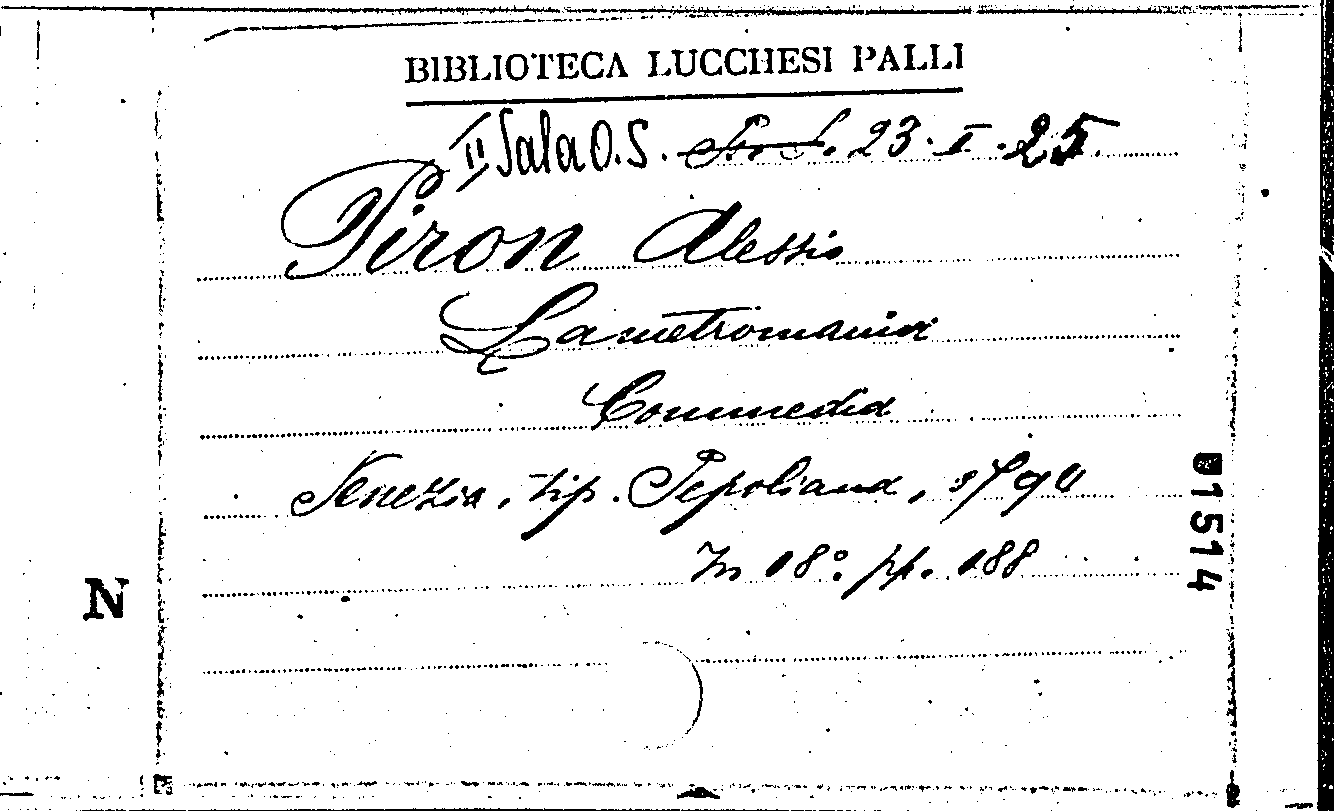 BIBLIOTECA LUCCHESI PALLI
II Sala O.S. 23. I. 25
Piron Alessio
La metromania
Commedia
Venezia, tip. Pepoliana, 1790
In 18º. pp. 188
01514
N